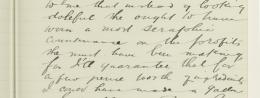 to me that instead of looking
doleful she ought to have
worn a most seraphic
countenance on the profits
she must have been making
for I'll guarantee that for
a few pence worth ingredients
I could have made a